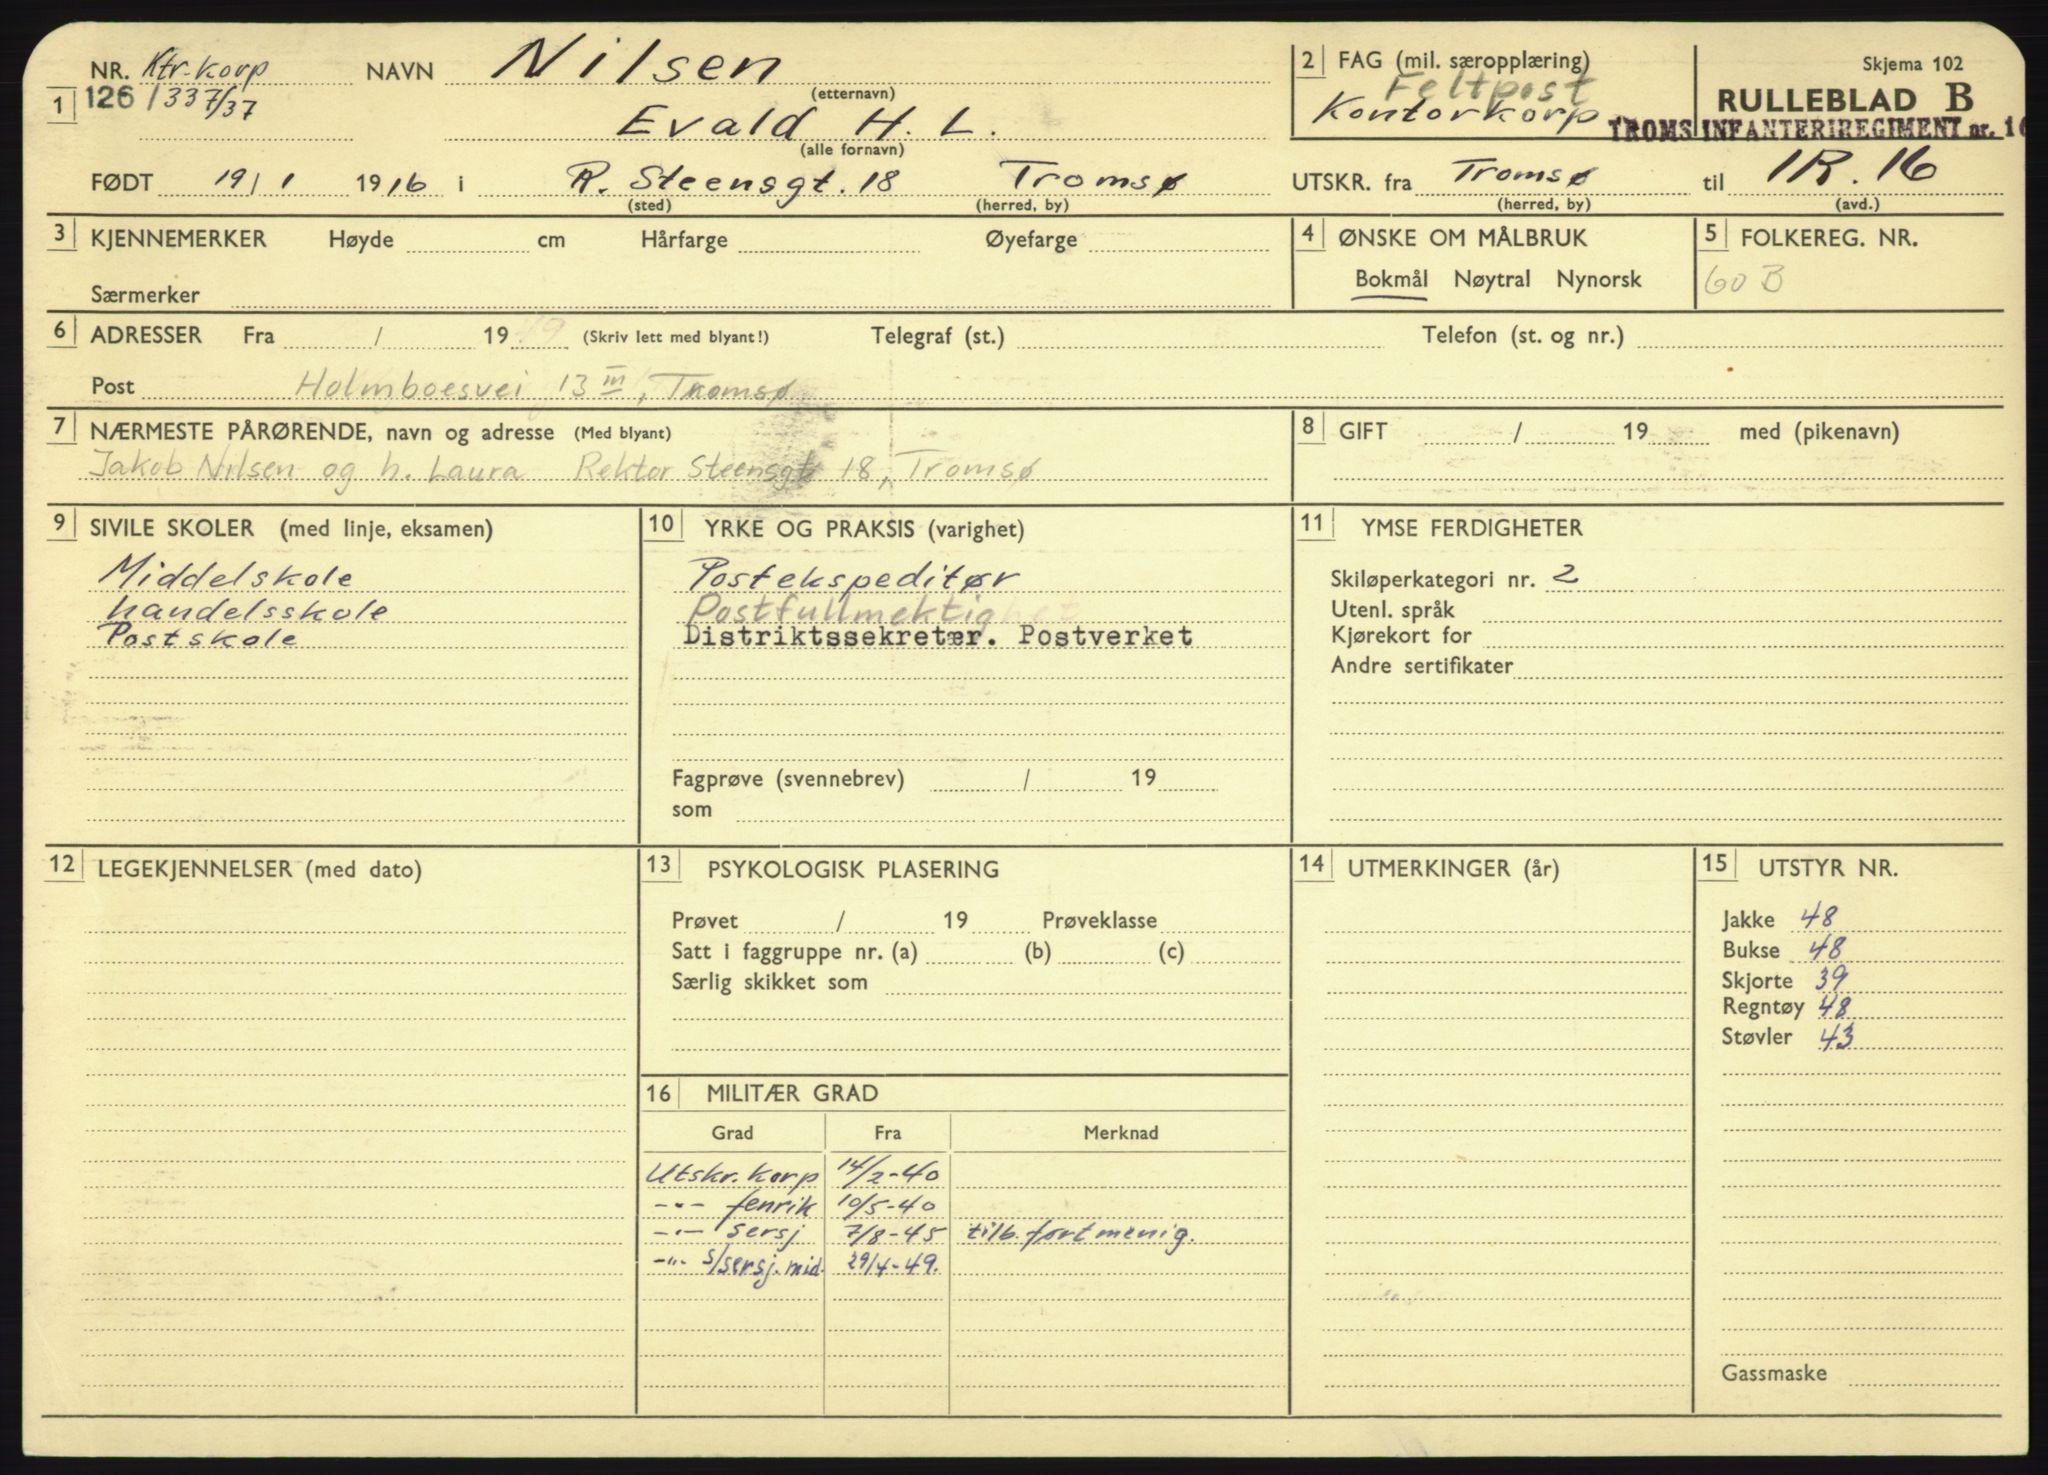 NR. Ktr.korp NAVN Nilsen
(etternavn)
1 126/337/37
Evald H. L.
(alle fornavn)
FØDT 19/1 1916 i R. Steensgt. 18 Tromsø
(sted) (herred, by)
2 FAG (mil. særopplæring)
Feltpost
Kontorkorp
Skjema 102
RULLEBLAD B
TROMS INFANTERIREGIMENT nr. 16
UTSKR. fra Tromsø til IR. 16
(herred, by) (avd.)
3 KJENNEMERKER Høyde cm Hårfarge Øyefarge
Særmerker
4 ØNSKE OM MÅLBRUK
Bokmål Nøytral Nynorsk
5 FOLKEREG. NR.
60 B
6 ADRESSER Fra / 19 49 (Skriv lett med blyant!) Telegraf (st.) Telefon (st. og nr.)
Post Holmboesvei 13 III, Tromsø
7 NÆRMESTE PÅRØRENDE, navn og adresse (Med blyant)
Jakob Nilsen og h. Laura Rektor Steensgt 18, Tromsø
8 GIFT / 19 med (pikenavn)
9 SIVILE SKOLER (med linje, eksamen)
Middelskole
handelsskole
Postskole
10 YRKE OG PRAKSIS (varighet)
Postekspeditør
Postfullmektig
Distriktssekretær. Postverket
Fagprøve (svennebrev) / 19
som
11 YMSE FERDIGHETER
Skiløperkategori nr. 2
Utenl. språk
Kjørekort for
Andre sertifikater
12 LEGEKJENNELSER (med dato)
13 PSYKOLOGISK PLASERING
Prøvet / 19 Prøveklasse
Satt i faggruppe nr. (a) (b) (c)
Særlig skikket som
14 UTMERKINGER (år)
15 UTSTYR NR.
Jakke 48
Bukse 48
Skjorte 39
Regntøy 48
Støvler 43
Gassmaske
16 MILITÆR GRAD
Grad Fra Merknad
Utskr. korp 14/2-40
-"- fenrik 10/5-40
-"- sersj 7/8-45 tilb.ført menig.
-"- s/sersj. mid. 29/4-49.